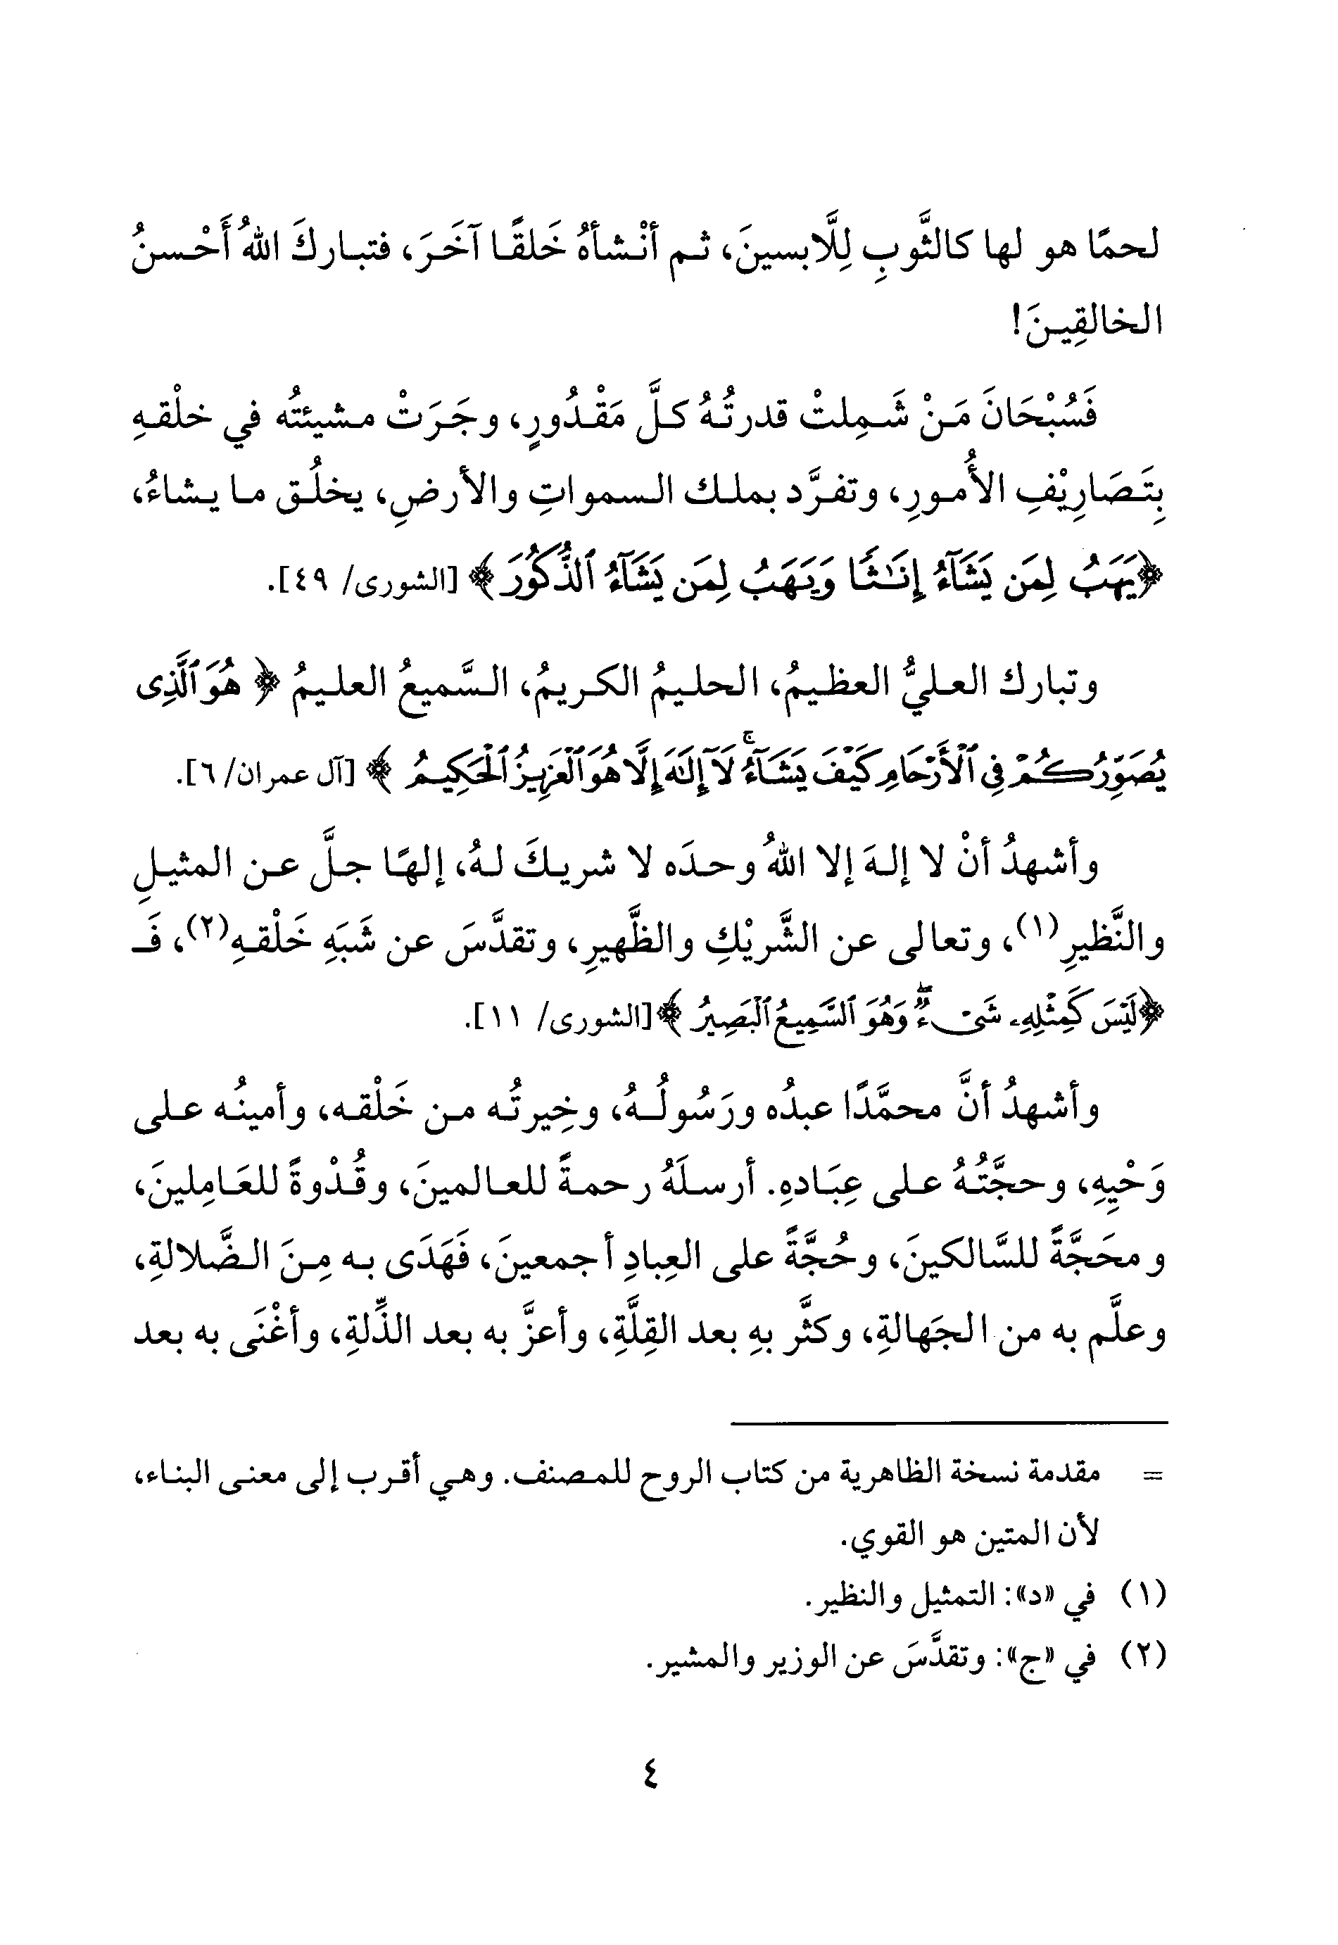 لحمًا هو لها كالثَّوبِ لِلَّابسينَ، ثم أنْشأهُ خَلقًا آخَرَ، فتباركَ اللهُ أَحْسنُ
الخالقِينَ!
فَسُبْحَانَ مَنْ شَمِلتْ قدرتُهُ كلَّ مَقْدُورٍ، وجَرَتْ مشيئتُه في خلْقهِ
بِتَصَارِيْفِ الأُمورِ، وتفرَّد بملك السمواتِ والأرضِ، يخلُق ما يشاءُ،
﴿يَهَبُ لِمَن يَشَآءُ إِنَٰثًا وَيَهَبُ لِمَن يَشَآءُ ٱلذُّكُورَ﴾ [الشورى/ ٤٩].
وتبارك العليُّ العظيمُ، الحليمُ الكريمُ، السَّميعُ العليمُ ﴿هُوَ ٱلَّذِى
يُصَوِّرُكُمْ فِى ٱلْأَرْحَامِ كَيْفَ يَشَآءُ ۚ لَآ إِلَٰهَ إِلَّا هُوَ ٱلْعَزِيزُ ٱلْحَكِيمُ﴾ [آل عمران/ ٦].
وأشهدُ أنْ لا إلهَ إلا اللهُ وحدَه لا شريكَ لهُ، إلهًا جلَّ عن المثيلِ
والنَّظيرِ(١)، وتعالى عن الشَّريْكِ والظَّهيرِ، وتقدَّسَ عن شَبَهِ خَلْقهِ(٢)، فَـ
﴿لَيْسَ كَمِثْلِهِۦ شَىْءٌ ۖ وَهُوَ ٱلسَّمِيعُ ٱلْبَصِيرُ﴾ [الشورى/ ١١].
وأشهدُ أنَّ محمَّدًا عبدُه ورَسُولُهُ، وخِيرتُه من خَلْقه، وأمينُه على
وَحْيِهِ، وحجَّتُهُ على عِبَادهِ. أرسلَهُ رحمةً للعالمينَ، وقُدْوةً للعَامِلينَ،
ومحَجَّةً للسَّالكينَ، وحُجَّةً على العِبادِ أجمعينَ، فَهَدَى به مِنَ الضَّلالةِ،
وعلَّم به من الجَهالةِ، وكثَّر بهِ بعد القِلَّةِ، وأعزَّ به بعد الذِّلةِ، وأغْنَى به بعد
= مقدمة نسخة الظاهرية من كتاب الروح للمصنف. وهي أقرب إلى معنى البناء،
لأن المتين هو القوي.
(١) في «د»: التمثيل والنظير.
(٢) في «ج»: وتقدَّسَ عن الوزير والمشير.
٤